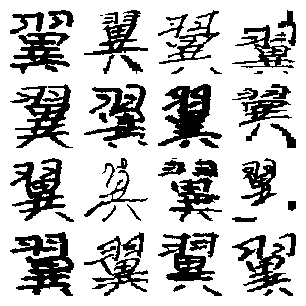 翼翼翼翼
翼翼翼翼
翼翼翼翼
翼翼翼翼